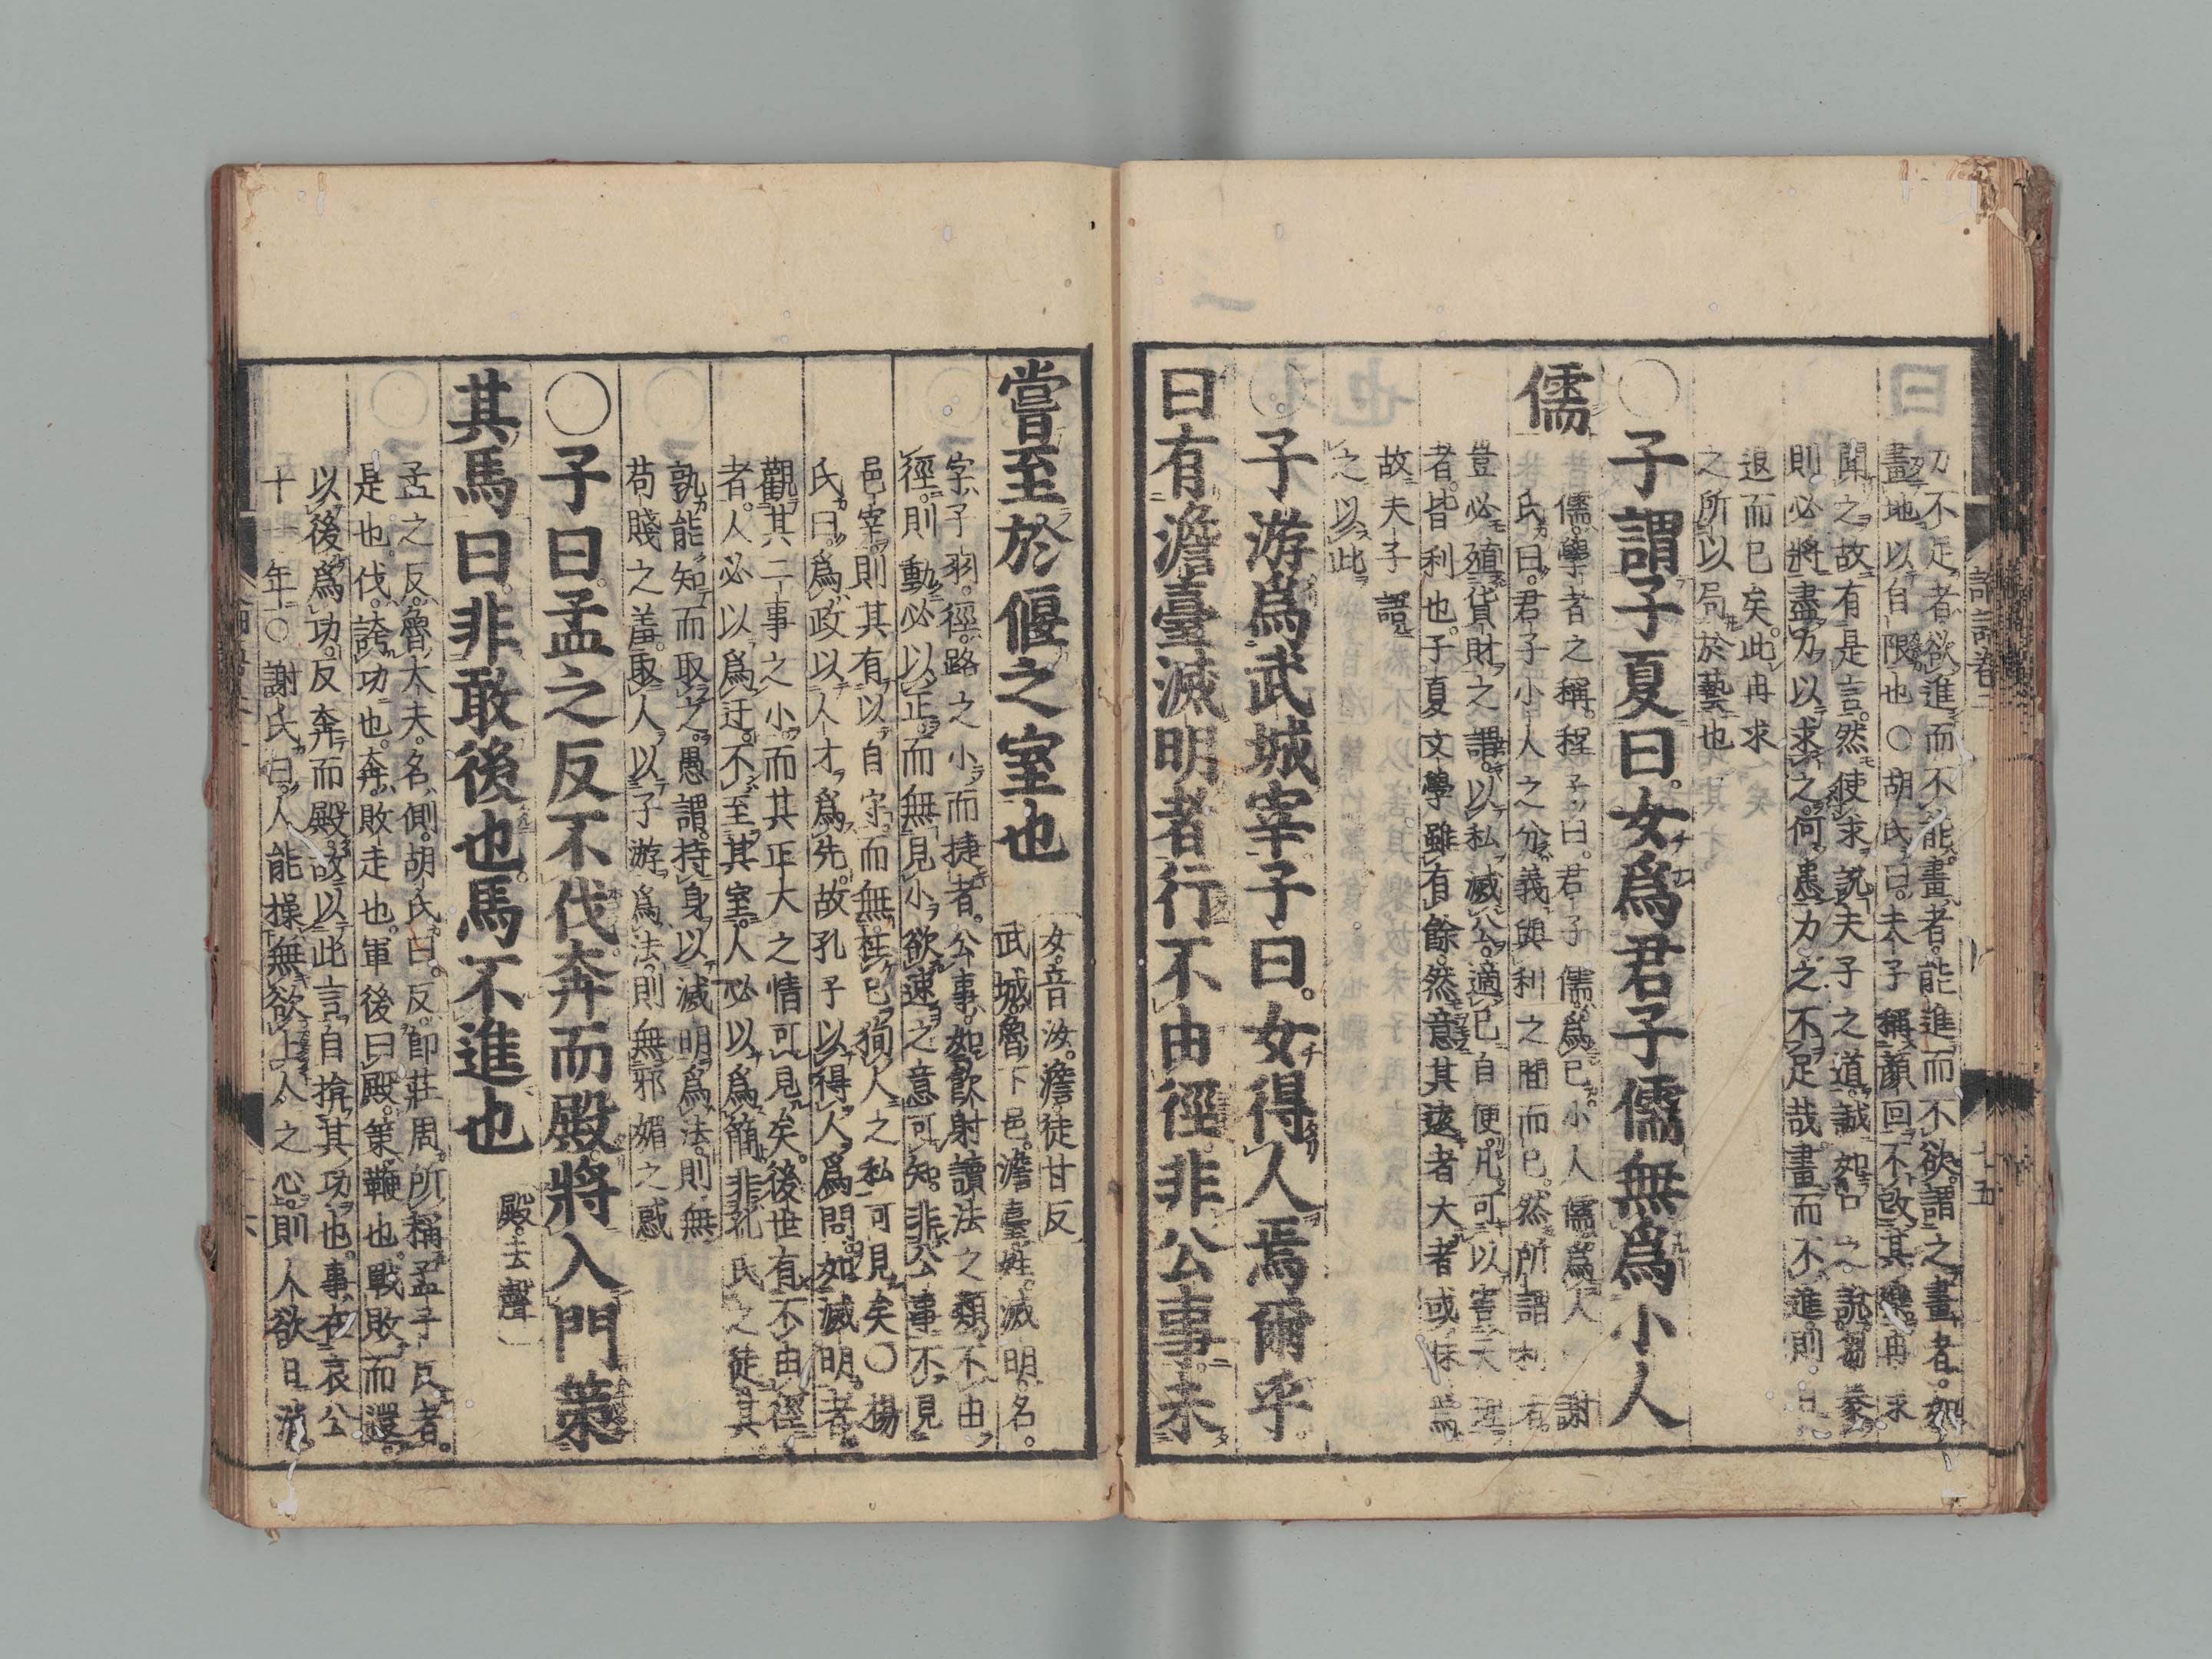 力不足者欲進而不能畫者能進而不欲謂之畫者如
畫地以自限也○胡氏曰夫子稱顏回不改其樂冉求
聞之故有是言然使求說夫子之道誠如口之說芻豢
則必將盡力以求之何患力之不足哉畫而不進則日
退而已矣此冉求
之所以局於藝也
○子謂子夏曰女爲君子儒無爲小人
儒
儒學者之稱程子曰君子儒爲己小人儒爲人 謝
氏曰君子小人之分義與利之間而已然所謂利者
豈必殖貨財之謂以私滅公適己自便凡可以害天理
者皆利也子夏文學雖有餘然意其遠者大者或昧焉
故夫子語
之以此
○子游爲武城宰子曰女得人焉爾乎
曰有澹臺滅明者行不由徑非公事未
嘗至於偃之室也
女音汝澹徒甘反
武城魯下邑澹臺姓滅明名
字子羽徑路之小而捷者公事如飲射讀法之類不由
徑則動必以正而無見小欲速之意可知非公事不見
邑宰則其有以自守而無枉己狥人之私可見矣○楊
氏曰爲政以人才爲先故孔子以得人爲問如滅明者
觀其二事之小而其正大之情可見矣後世有不由徑
者人必以爲迂不至其室人必以爲簡非孔氏之徒其
孰能知而取之愚謂持身以滅明爲法則無
苟賤之羞取人以子游爲法則無邪媚之惑
○子曰孟之反不伐奔而殿將入門策
其馬曰非敢後也馬不進也
殿去聲
孟之反魯大夫名側胡氏曰反卽莊周所稱孟子反者
是也伐誇功也奔敗走也軍後曰殿策鞭也戰敗而還
以後爲功反奔而殿故以此言自揜其功也事在哀公
十一年○謝氏曰人能操無欲上人之心則人欲日消